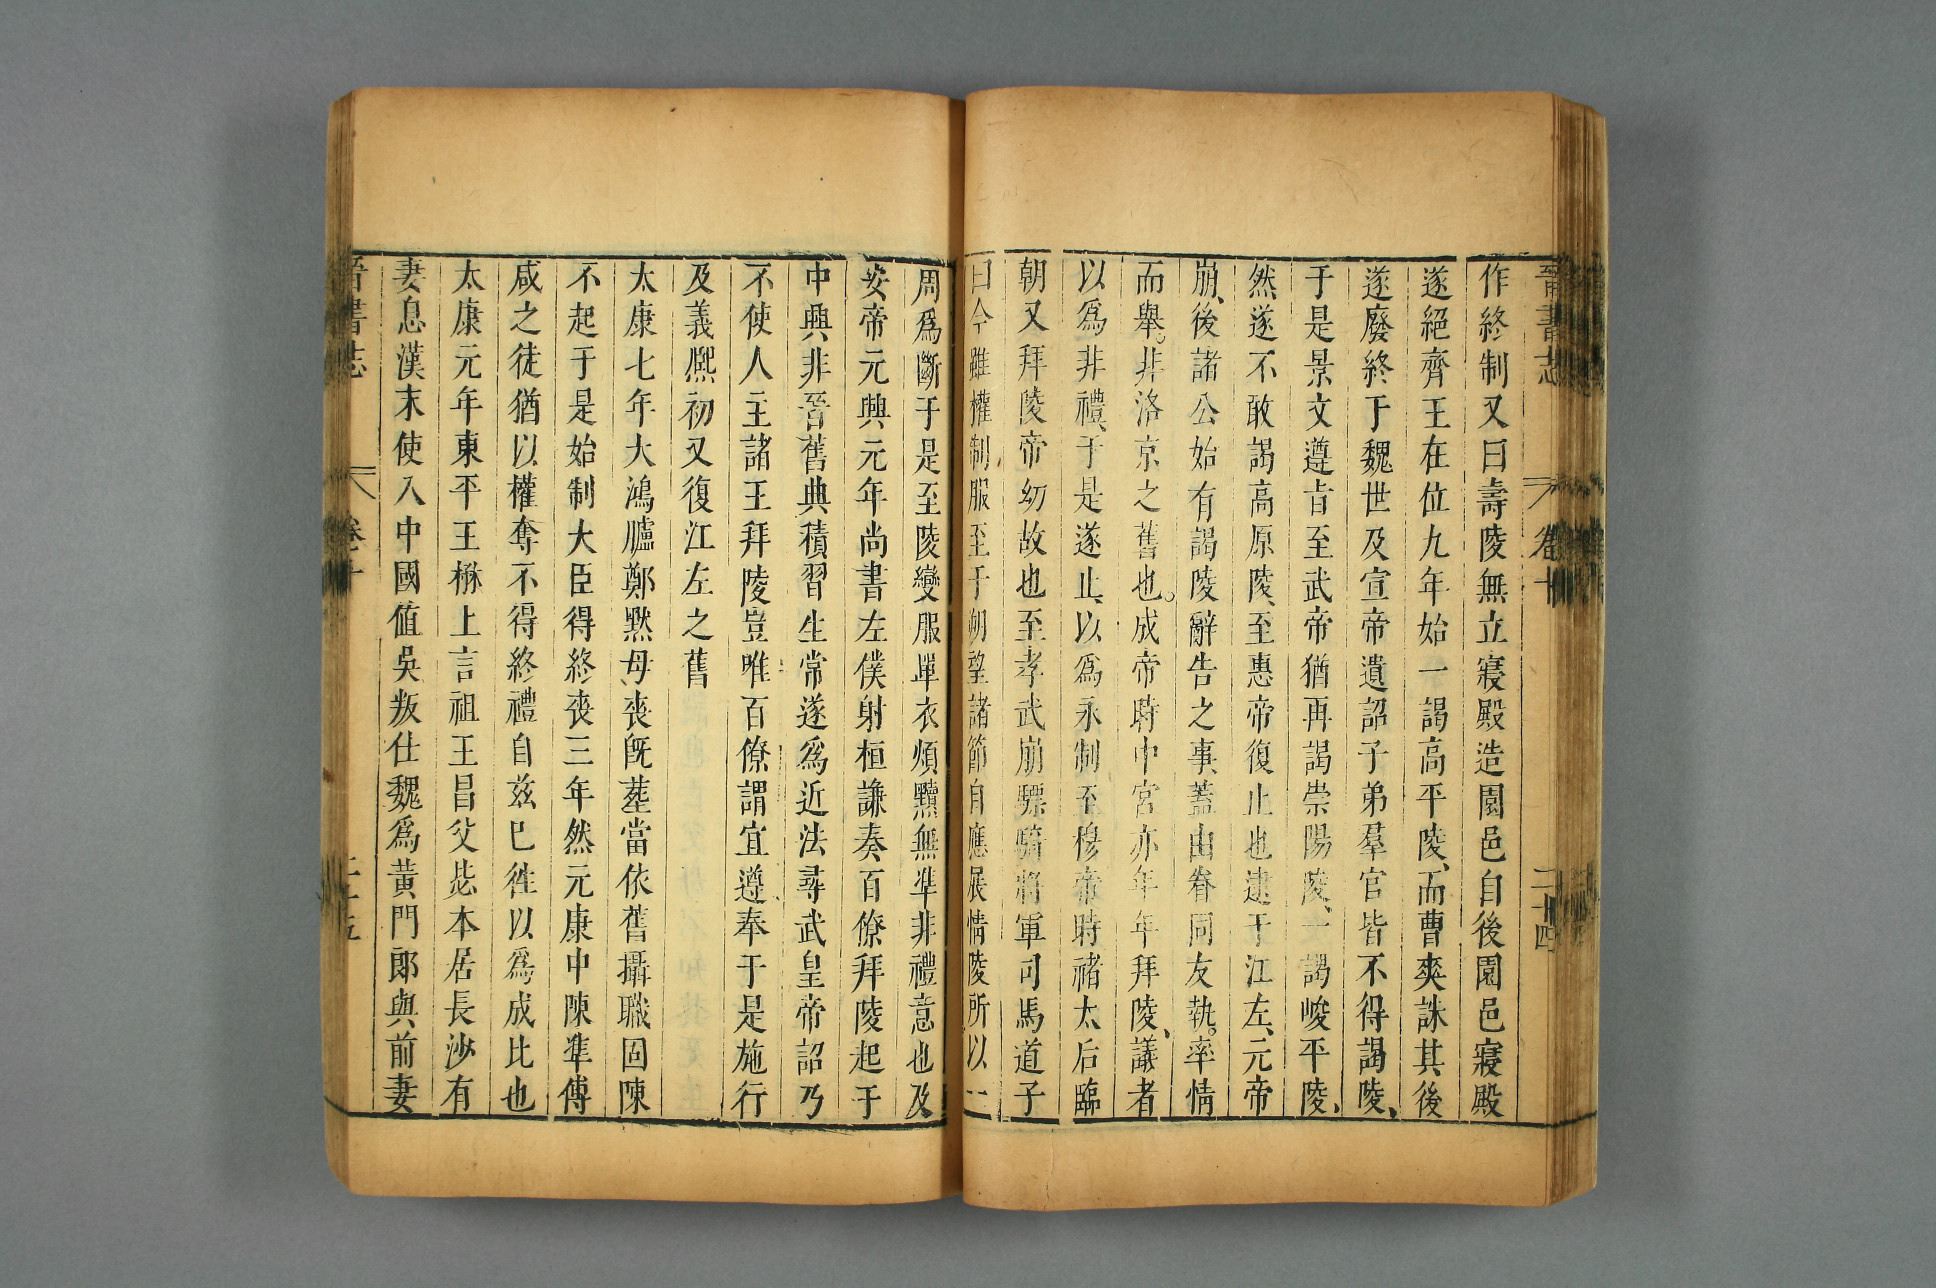 晉書志 卷十 二十四
作終制又曰壽陵無立寢殿造園邑自後園邑寢殿
遂絕齊王在位九年始一謁高平陵、而曹爽誅其後
遂廢終于魏世及宣帝遺詔子弟羣官皆不得謁陵、
于是景文遵旨至武帝猶再謁崇陽陵、一謁峻平陵、
然遂不敢謁高原陵、至惠帝復止也逮于江左、元帝
崩、後諸公始有謁陵辭告之事、蓋由眷同友執。率情
而舉。非洛京之舊也。成帝時中宮亦年年拜陵、議者
以爲非禮、于是遂止、以爲永制至穆帝時褚太后臨
朝又拜陵帝幼故也至孝武崩驃騎將軍司馬道子
曰今雖權制服至于朔望諸節自應展情陵所以一
周爲斷于是至陵變服單衣煩黷無凖非禮意也及
安帝元興元年尚書左僕射桓謙奏百僚拜陵起于
中興非晉舊典積習生常遂爲近法尋武皇帝詔乃
不使人主諸王拜陵豈唯百僚謂宜遵奉于是施行
及義熙初又復江左之舊
太康七年大鴻臚鄭默母喪旣葬當依舊攝職固陳
不起于是始制大臣得終喪三年然元康中陳凖傅
咸之徒猶以權奪不得終禮自茲巳徃以爲成比也
太康元年東平王楙上言祖王昌父毖本居長沙有
妻息漢末使入中國値吳叛仕魏爲黃門郎與前妻
晉書志 卷十 二十五